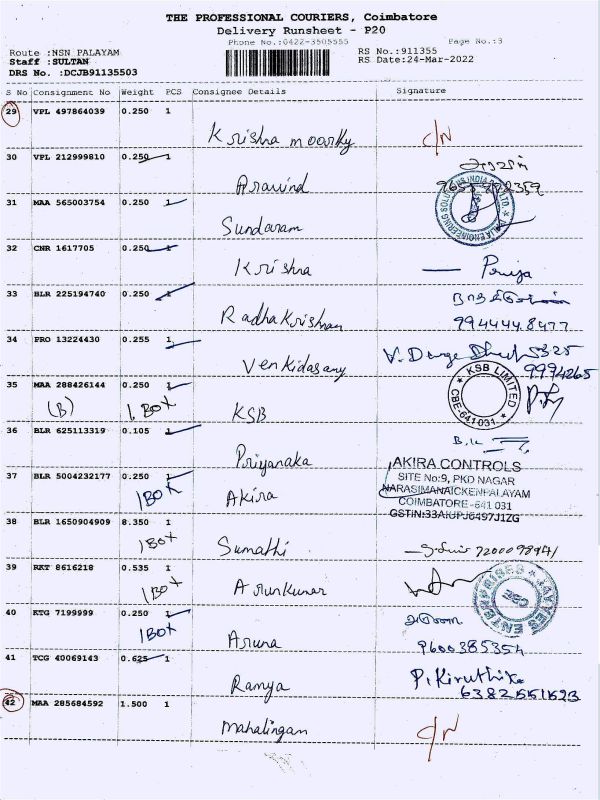 THE PROFESSIONAL COURIERS, Coimbatore
Delivery Runsheet - P20
Phone No.:0422-3505555 Page No.:3
Route :NSN PALAYAM RS No.:911355
Staff :SULTAN RS Date:24-Mar-2022
DRS No. :DCJB91135503
S No Consignment No Weight PCS Consignee Details Signature
29 VPL 497864039 0.250 1
Krishna moorthy C/N
30 VPL 212999810 0.250 1
Aravind
31 MAA 565003754 0.250 1
Sundaram
32 CNR 1617705 0.250 1
Krishna
33 BLR 225194740 0.250 1
Radha Krishnan 994444.8477
34 PRO 13224430 0.255 1
Venkidasamy
35 MAA 288426144 0.250 1
(B) 1 BOX KSB
KSB LIMITED CBE-641 031
36 BLR 625113319 0.105 1
Priyanaka
37 BLR 5004232177 0.250 1
1 BOX Akira
AKIRA CONTROLS
SITE No:9, PKD NAGAR
NARASIMANAICKENPALAYAM
COIMBATORE-641 031
38 BLR 1650904909 8.350 1
1 BOX Sumathi
39 RKT 8616218 0.535 1
1 BOX Arunkumar
JAYYES ENTERPRISES CBE
40 KTG 7199999 0.250 1
1 BOX Aruna
9600385354
41 TCG 40069143 0.625 1
Ramya P. Kiruthika
42 MAA 285684592 1.500 1
Mahalingam C/N